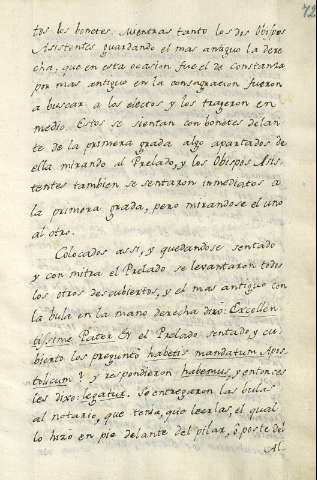 72
tos los bonetes. Mientras tanto los dos Obispos
Asistentes guardando el mas antiguo la dere
cha, que en esta ocasion fue el de Constanza
por mas antiguo en la consagracion fueron
a buscar a los electos y los trajeron en
medio. Estos se sientan con bonetes delan
te de la primera grada algo apartados de
ella mirando al Prelado, y los Obispos Asis-
tentes tambien se sentaron inmediatos a
la primera grada, pero mirandose el uno
al otro.
Colocados assi, y quedandose sentado
y con mitra el Prelado se levantaron todos
los otros descubiertos, y el mas antiguo con
la bula en la mano derecha dixo: Excellen
tissime Pater &c el Prelado sentado y cu-
bierto los preguntò habetis mandatum Apos
tolicum? y respondieron habemus, y entonces
les dixo: legatur. Se entregaron las bulas
al notario, que tenia, que leerlas, el qual
lo hizo en pie delante del pilar, ò poste del
Al-